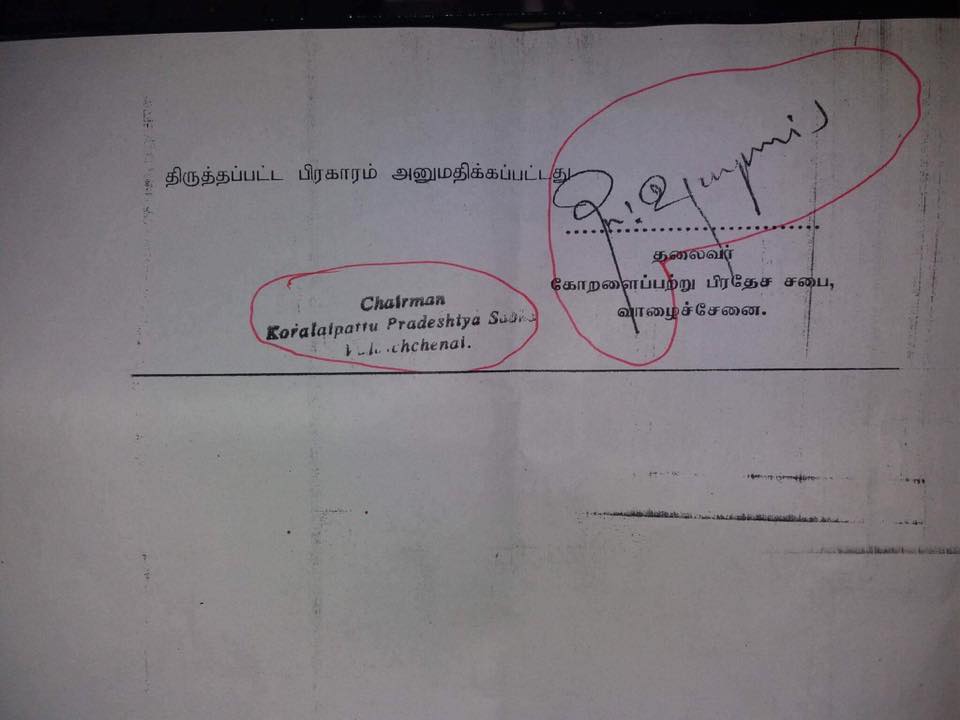 திருத்தப்பட்ட பிரகாரம் அனுமதிக்கப்பட்டது
தலைவர்
கோறளைப்பற்று பிரதேச சபை,
வாழைச்சேனை.
Chairman
Koralaipattu Pradeshiya